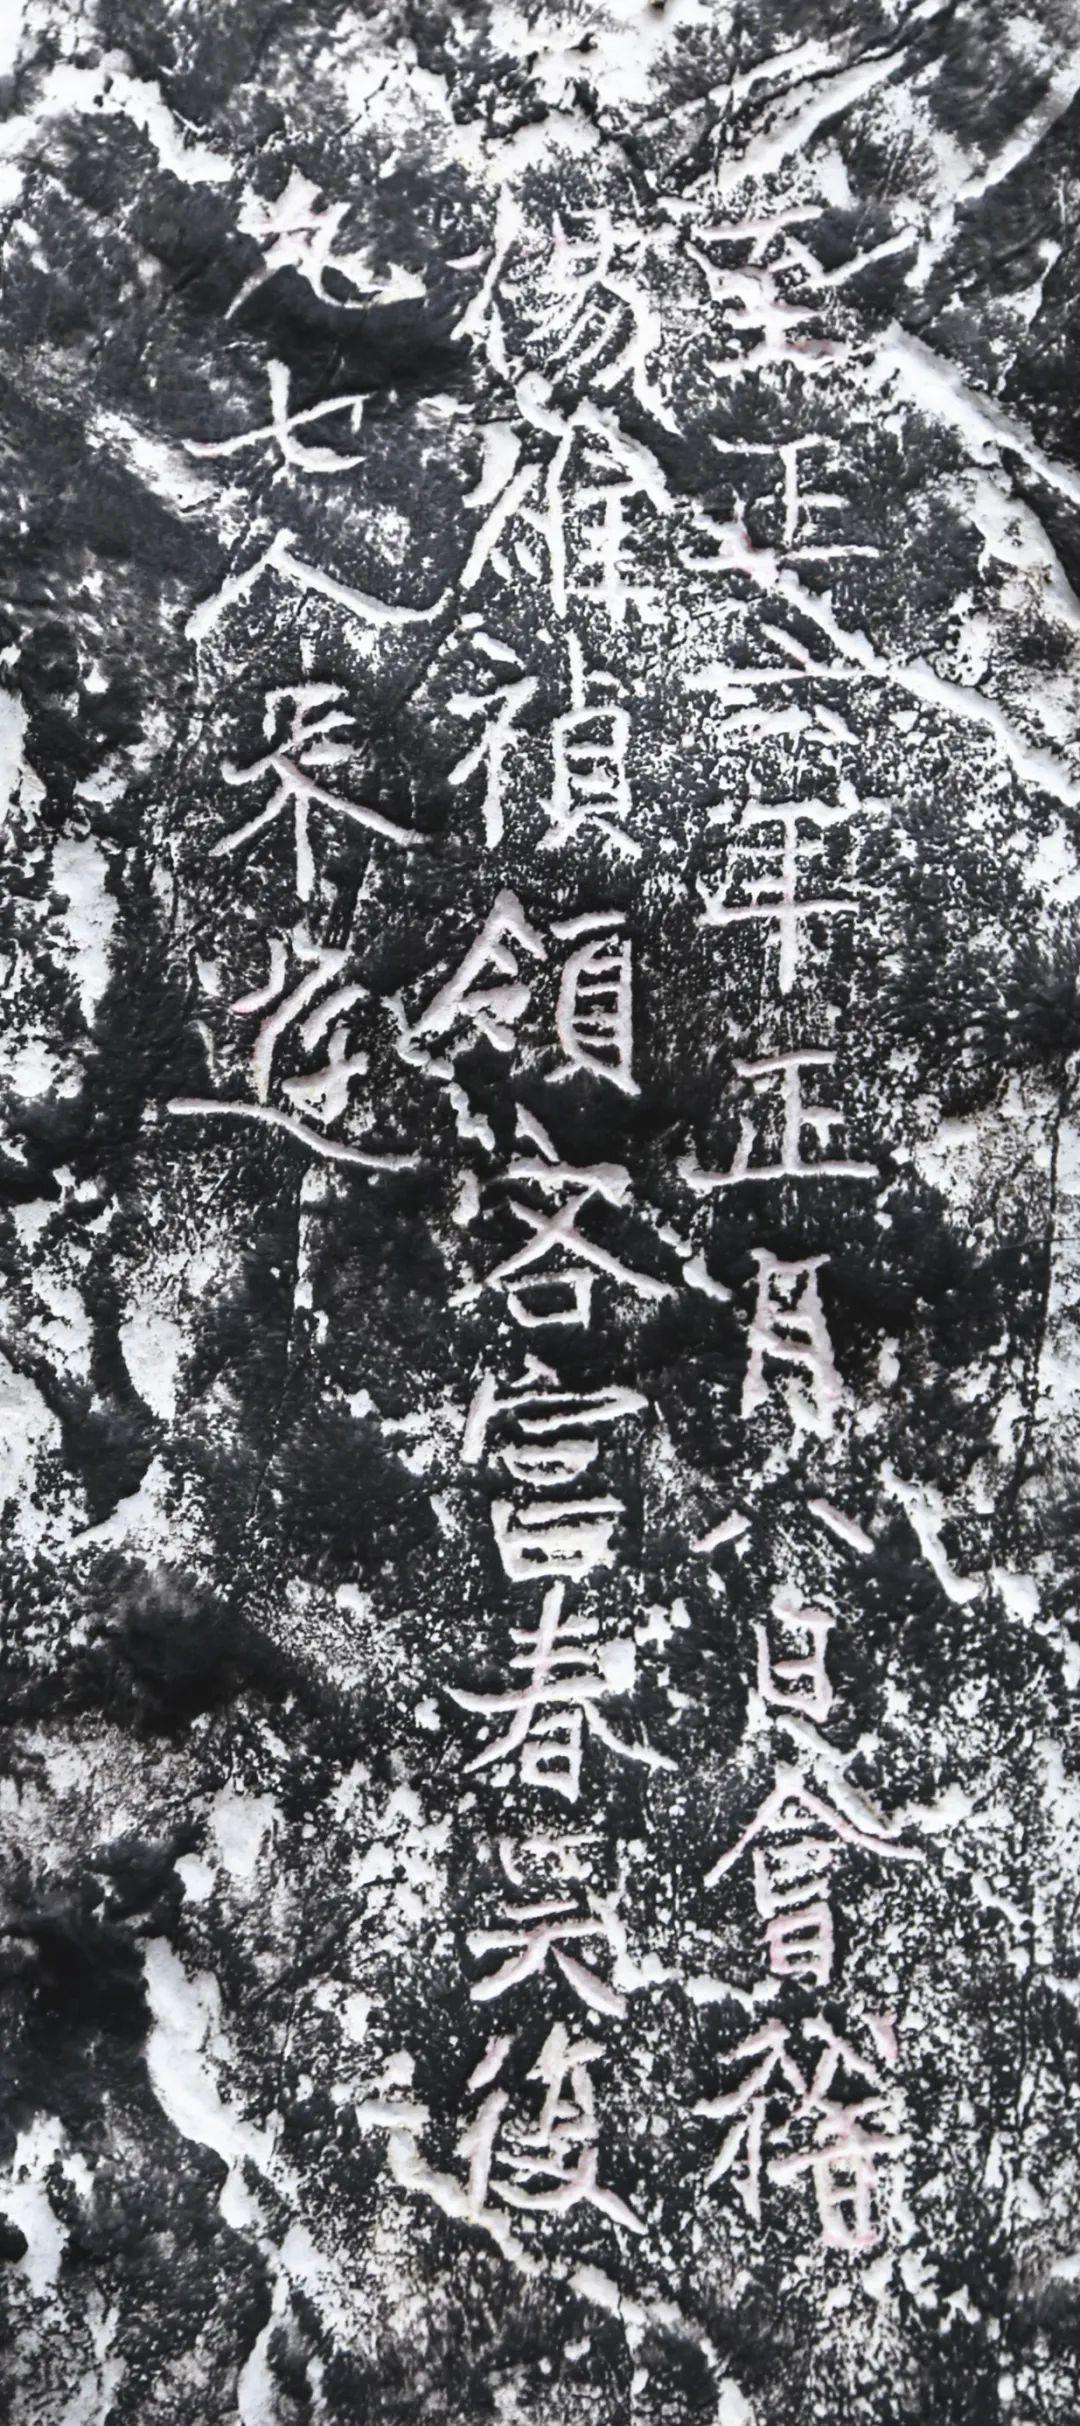 至正年正月八日會稽
楊維禎領客富春吳復
凡七人來遊